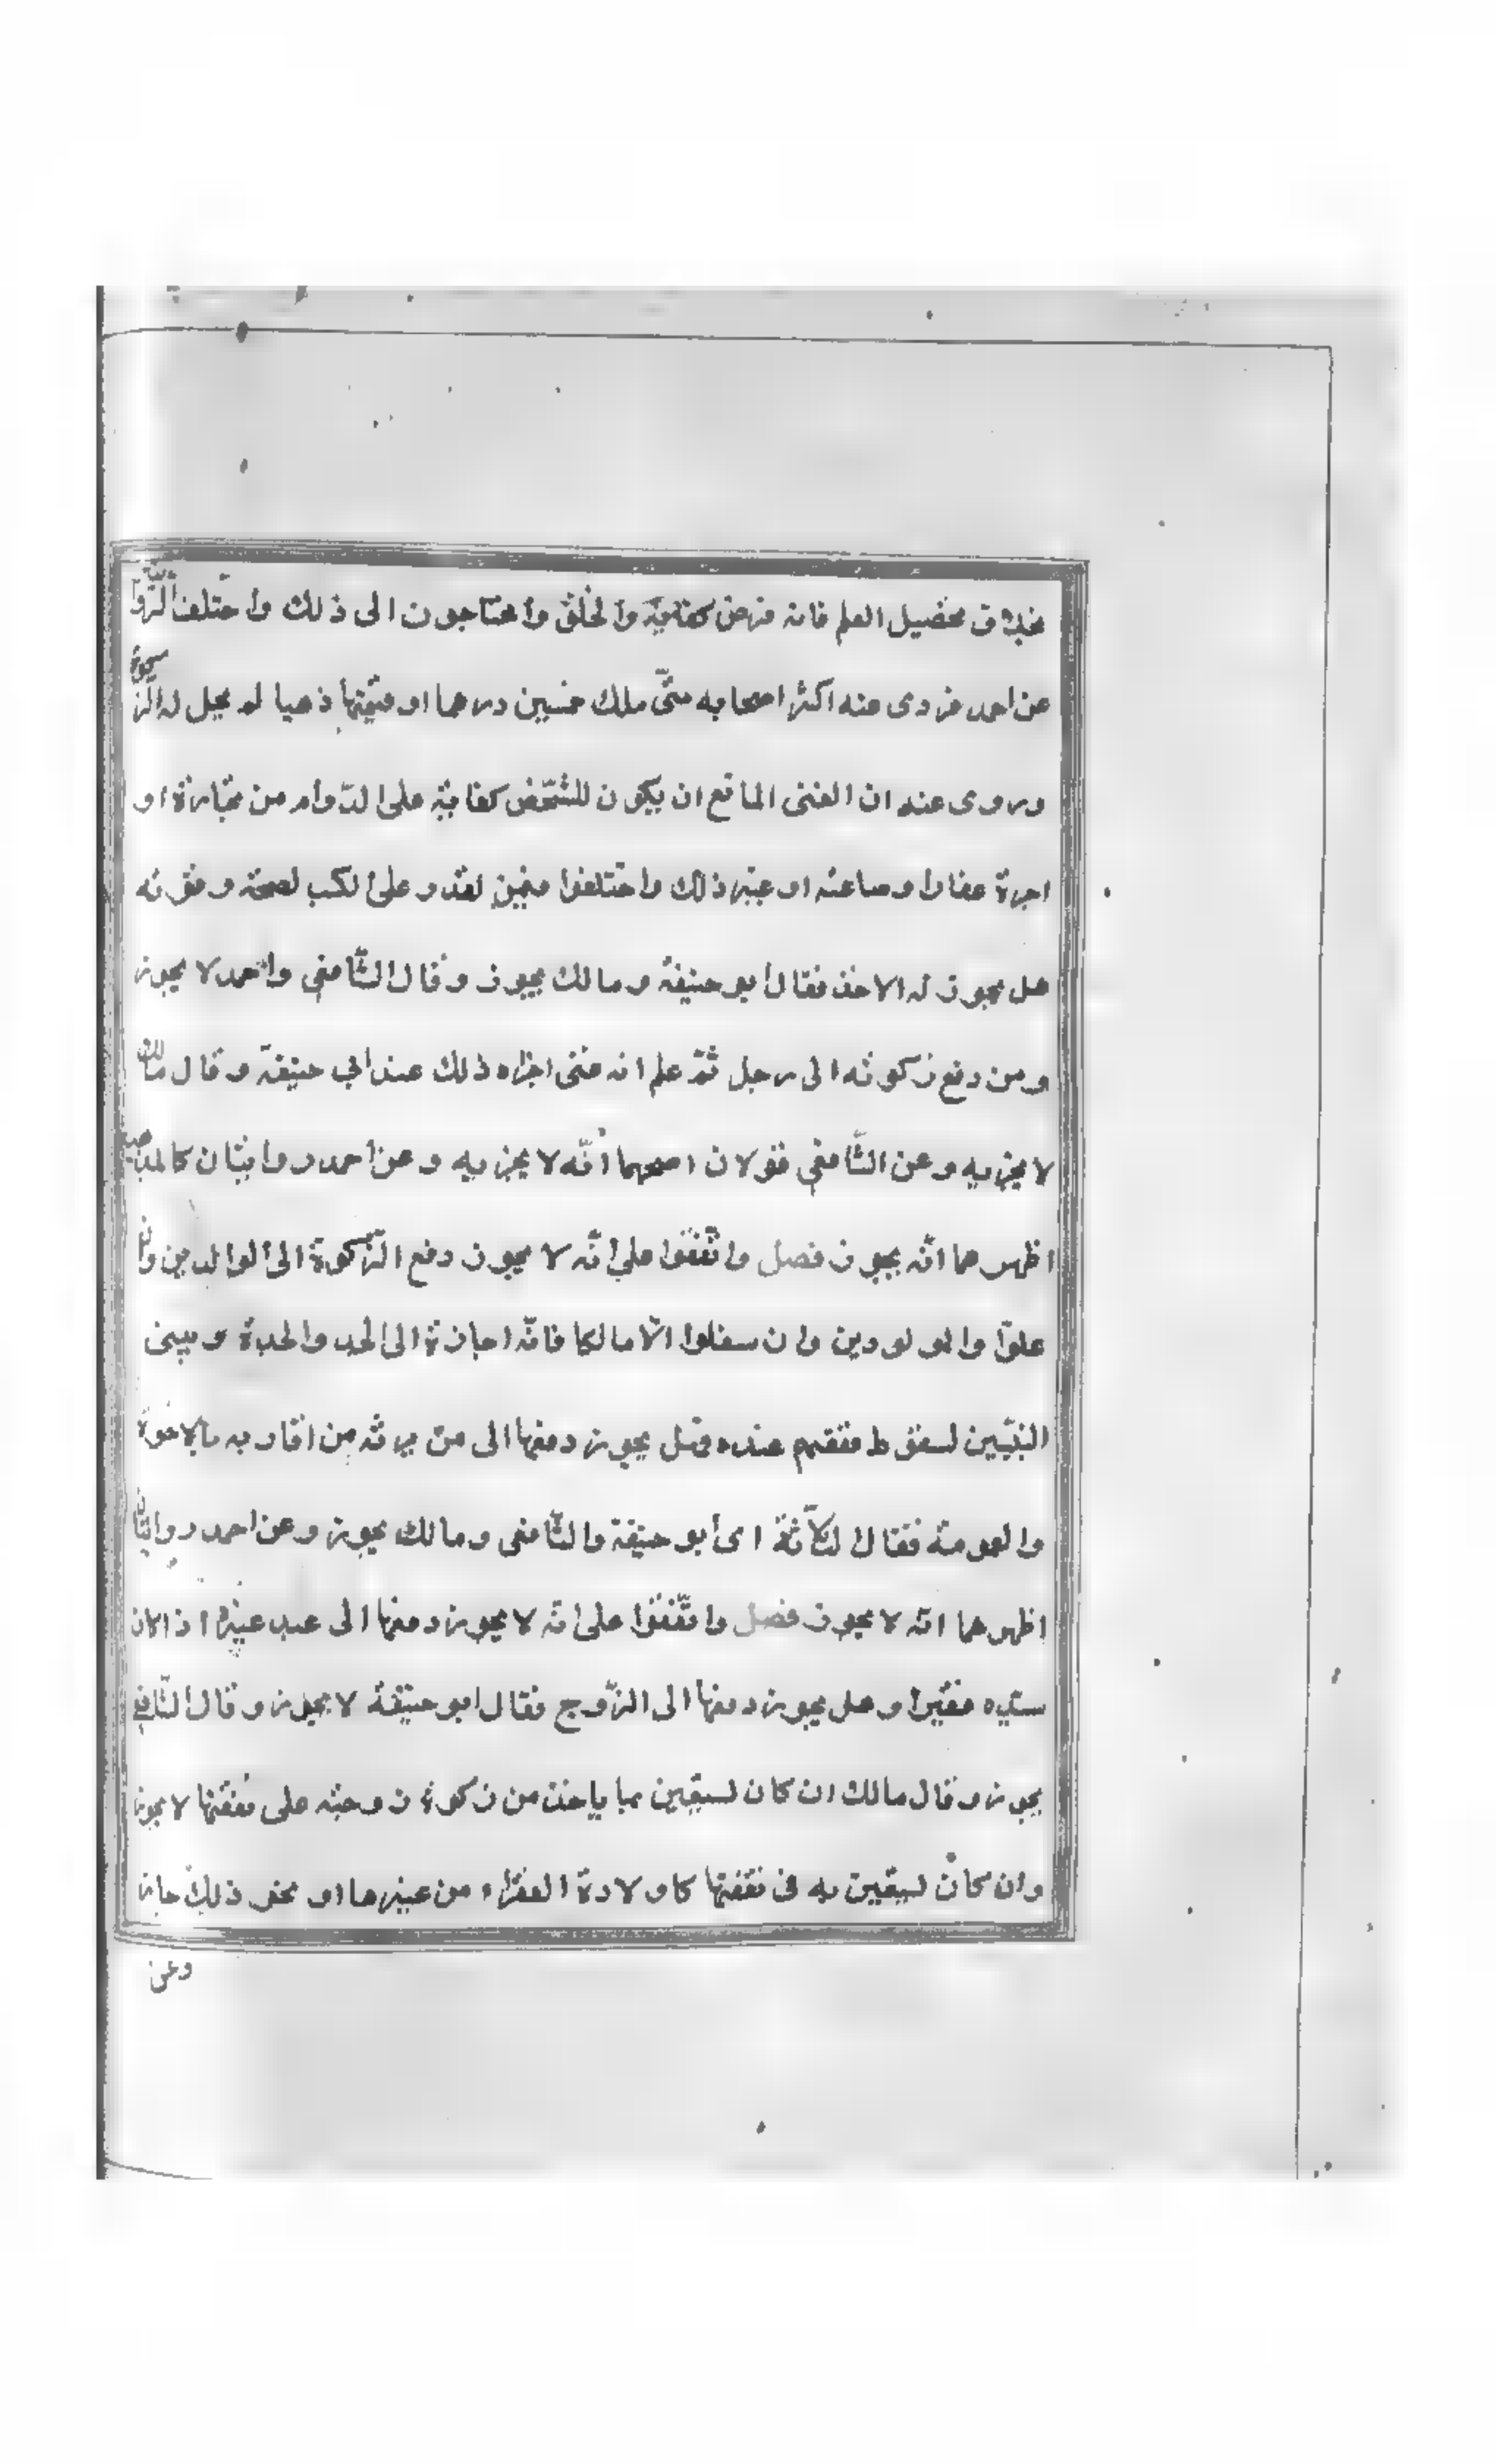 بخلاف تحصيل العلم فانه فرض كفاية والخلق محتاجون الى ذلك واختلف الرواية
عن احمد فروى عنه اكثر اصحابه متى ملك خمسين درهما او قيمتها ذهبا لم يحل له الزكوة
وروى عنه ان الغنى المانع ان يكون للشخص كفاية على الدوام من تجارة او
اجرة عقار او صناعته او غير ذلك واختلفوا فيمن يقدر على الكسب لصحته وقوته
هل يجوز له الاخذ فقال ابو حنيفة ومالك يجوز وقال الشافعي واحمد لا يجوز
ومن دفع زكوته الى رجل ثمّ علم انه غنى اجزاه ذلك عند أبي حنيفة وقال مالك
لا يجزيه وعن الشافعي قولان اصحهما أنّه لا يجزيه وعن احمد روايتان كالمذهبين
اظهرهما انّه يجوز فصل واتّفقوا على انّه لا يجوز دفع الزّكوة الى الوالدين وان
علوّا والمولودين وان سفلوا الّا مالكا فانّه اجازة الى الجد والجدة وبنى
البنين لسقوط نفقتهم عنده وهل يجوز دفعها الى من يرثه من اقاربه كالاخوة
والعمومة فقال الثلاثة اى أبو حنيفة والشّافعى ومالك يجوز وعن احمد روايتان
اظهرهما انّه لا يجوز فصل واتّفقوا على انّه لا يجوز دفعها الى عبد غيره اذا كان
سيّده فقيرا وهل يجوز دفعها الى الزّوج فقال ابو حنيفة لا يجوز وقال الشّافعي
يجوز وقال مالك ان كان يستعين بما ياخذ من زكوة زوجته على نفقتها لا يجوز
وان كان يستعين به فى نفقتها كاولادة الفقراء من غيرها او نحو ذلك جاز
وعن